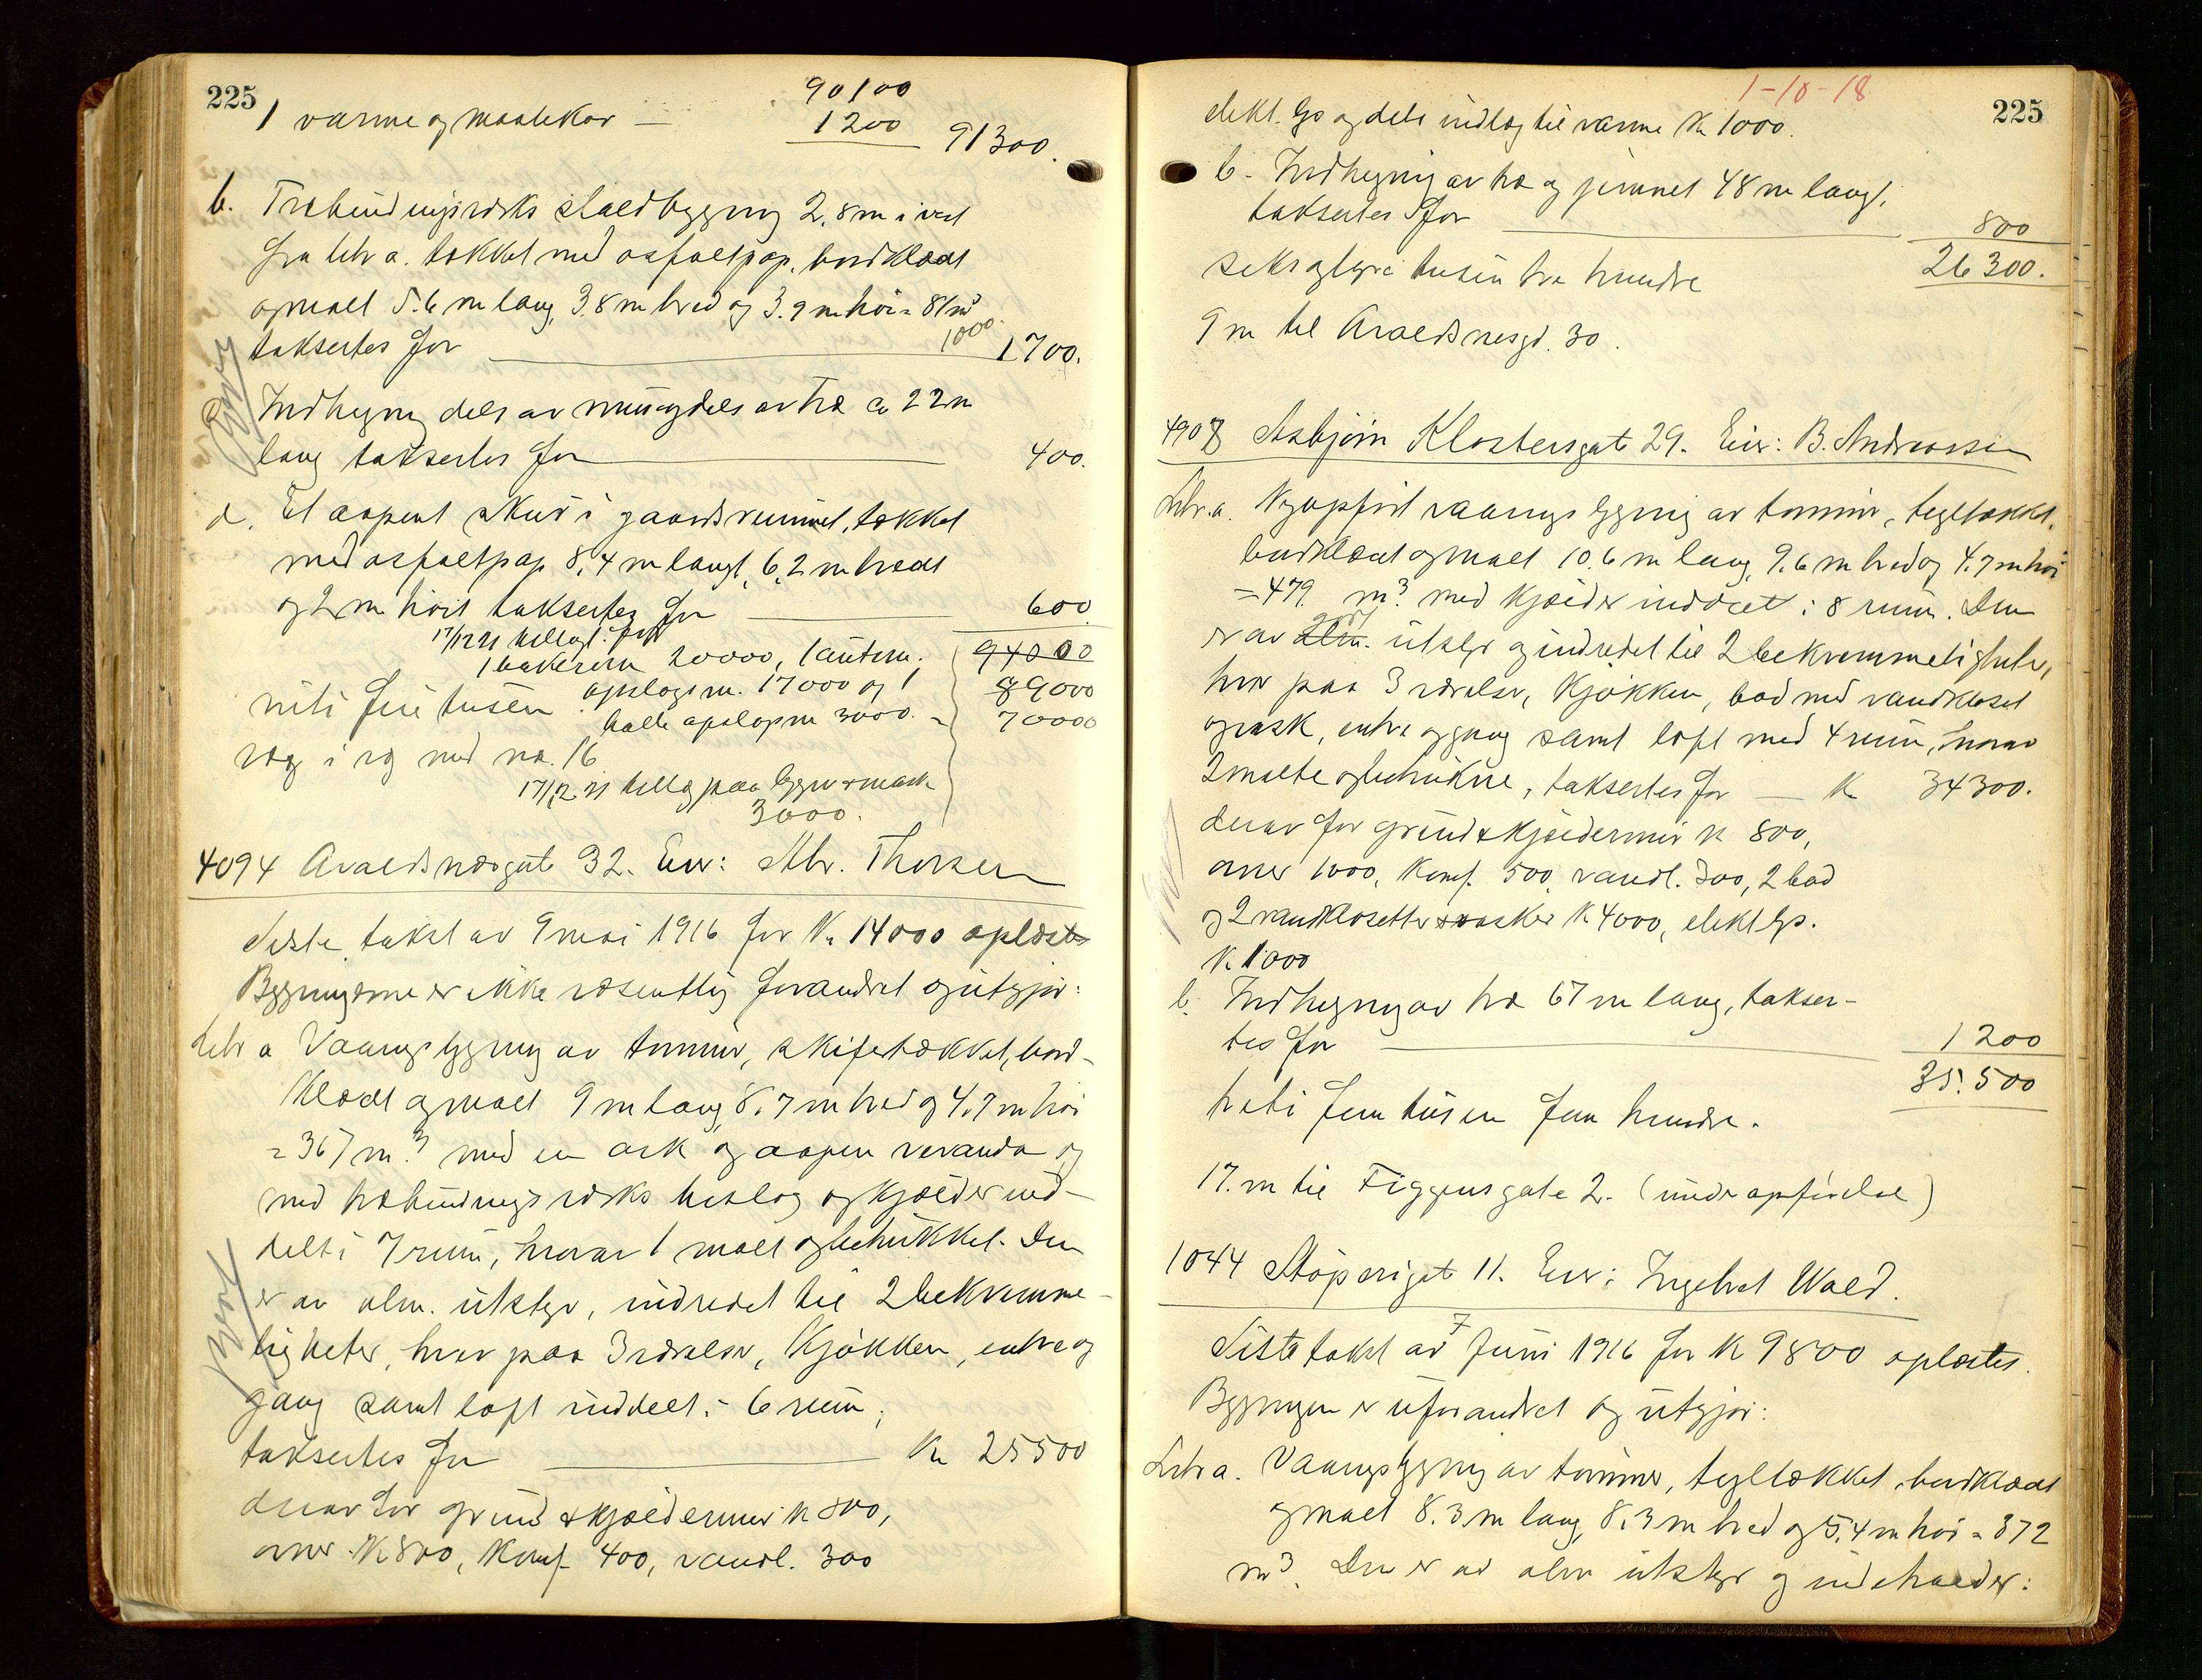 225
90100
1 varme og maalekar — 1200 91300.
b. Træbindingsværks staldbygning 2,8 m i vest
fra litr a. tækket med asfaltpap, bordklædt
og malt 5.6 m lang, 3.8 m bred og 3.9 m høi = 81 m³
1000.
taksertes for 1700.
c. Indhegning dels av mur og dels av træ ca 22 m
lang taksertes for 400.
d. Et aapent skur i gaardsrummet, tækket
med asfaltpap 8,4 m langt, 6,2 m bredt
og 2 m høit taksertes for 600
17/12 21 tillagt for
94000
1 bakerovn 20000, 1 autom.
niti fire tusen opslagsm. 17000 og 1 89000
balle opslagsm 3000. = 70000
væg i væg med no. 16
17/12 21 tillæg paa bygn & mask
3000.
4094 Avaldsnesgate 32. Eier: Abr. Thorsen
Siste takst av 9 mai 1916 for Kr. 14000 oplæstes
Bygningerne er ikke væsentlig forandret og utgjør:
Litr a Vaaningsbygning av tømmer, skifertækket, bord-
klædt og malt 9 m lang, 8.7 m bred og 4.7 m høi
= 367 m³ med en ark og aapen veranda og
med træbindingsværks tilslag og kjælder ind-
delt i 7 rum, hvorav 1 malt og betrukket. Den
er av alm. utstyr, indredet til 2 bekvemme-
ligheter, hver paa 3 værelser, kjøkken, entre og
gang samt loft inddelt i 6 rum,
taksertes for Kr 25500
derav for grund & kjældermur kr 800,
ovner kr 800, komf. 400, vandl. 300
1-10-18
225
elekt. lys og dels indlæg til varme Kr 1000.
b. Indhegning av træ og jernnet 48 m langt,
taksertes for 800
seks og tyve tusen tre hundre 26300.
9 m til Avaldsnesgt. 30.
4908 Asbjørn Klostersgate 29. Eier: B. Andreassen
Litr. a. Nyopført vaaningsbygning av tømmer, tegltækket,
bordklædt og malt 10.6 m lang, 9.6 m bred og 4.7 m høi
= 479 m³ med kjælder inddelt i 8 rum. Den
godt
er av alm. utstyr og indredet til 2 bekvemmeligheter,
hver paa 3 værelser, kjøkken, bad med vandkloset
og vask, entre og gang samt loft med 4 rum, hvorav
2 malte og betrukne, taksertes for — Kr 34300.
derav for grund & kjældermur kr 800,
ovner 1000, komf. 500, vandl. 300, 2 bad
og 2 vandklosetter & vasker Kr 4000, elekt lys.
Kr. 1000
b. Indhegning av træ 67 m lang, takser-
tes for 1200
35.500
treti fem tusen fem hundre.
17. m til Figgensgate 2. (under opførelse)
1044 Støperigt 11. Eier: Ingebret Wald.
Siste takst av 7 Juni 1916 for Kr 9800 oplæstes.
Bygningen er uforandret og utgjør:
Litr a. Vaaningsbygning av tømmer, tegltækket, bordklædt
og malt 8.3 m lang, 8.3 m bred og 5.4 m høi = 372
m³. Den er av alm utstyr og indeholder: